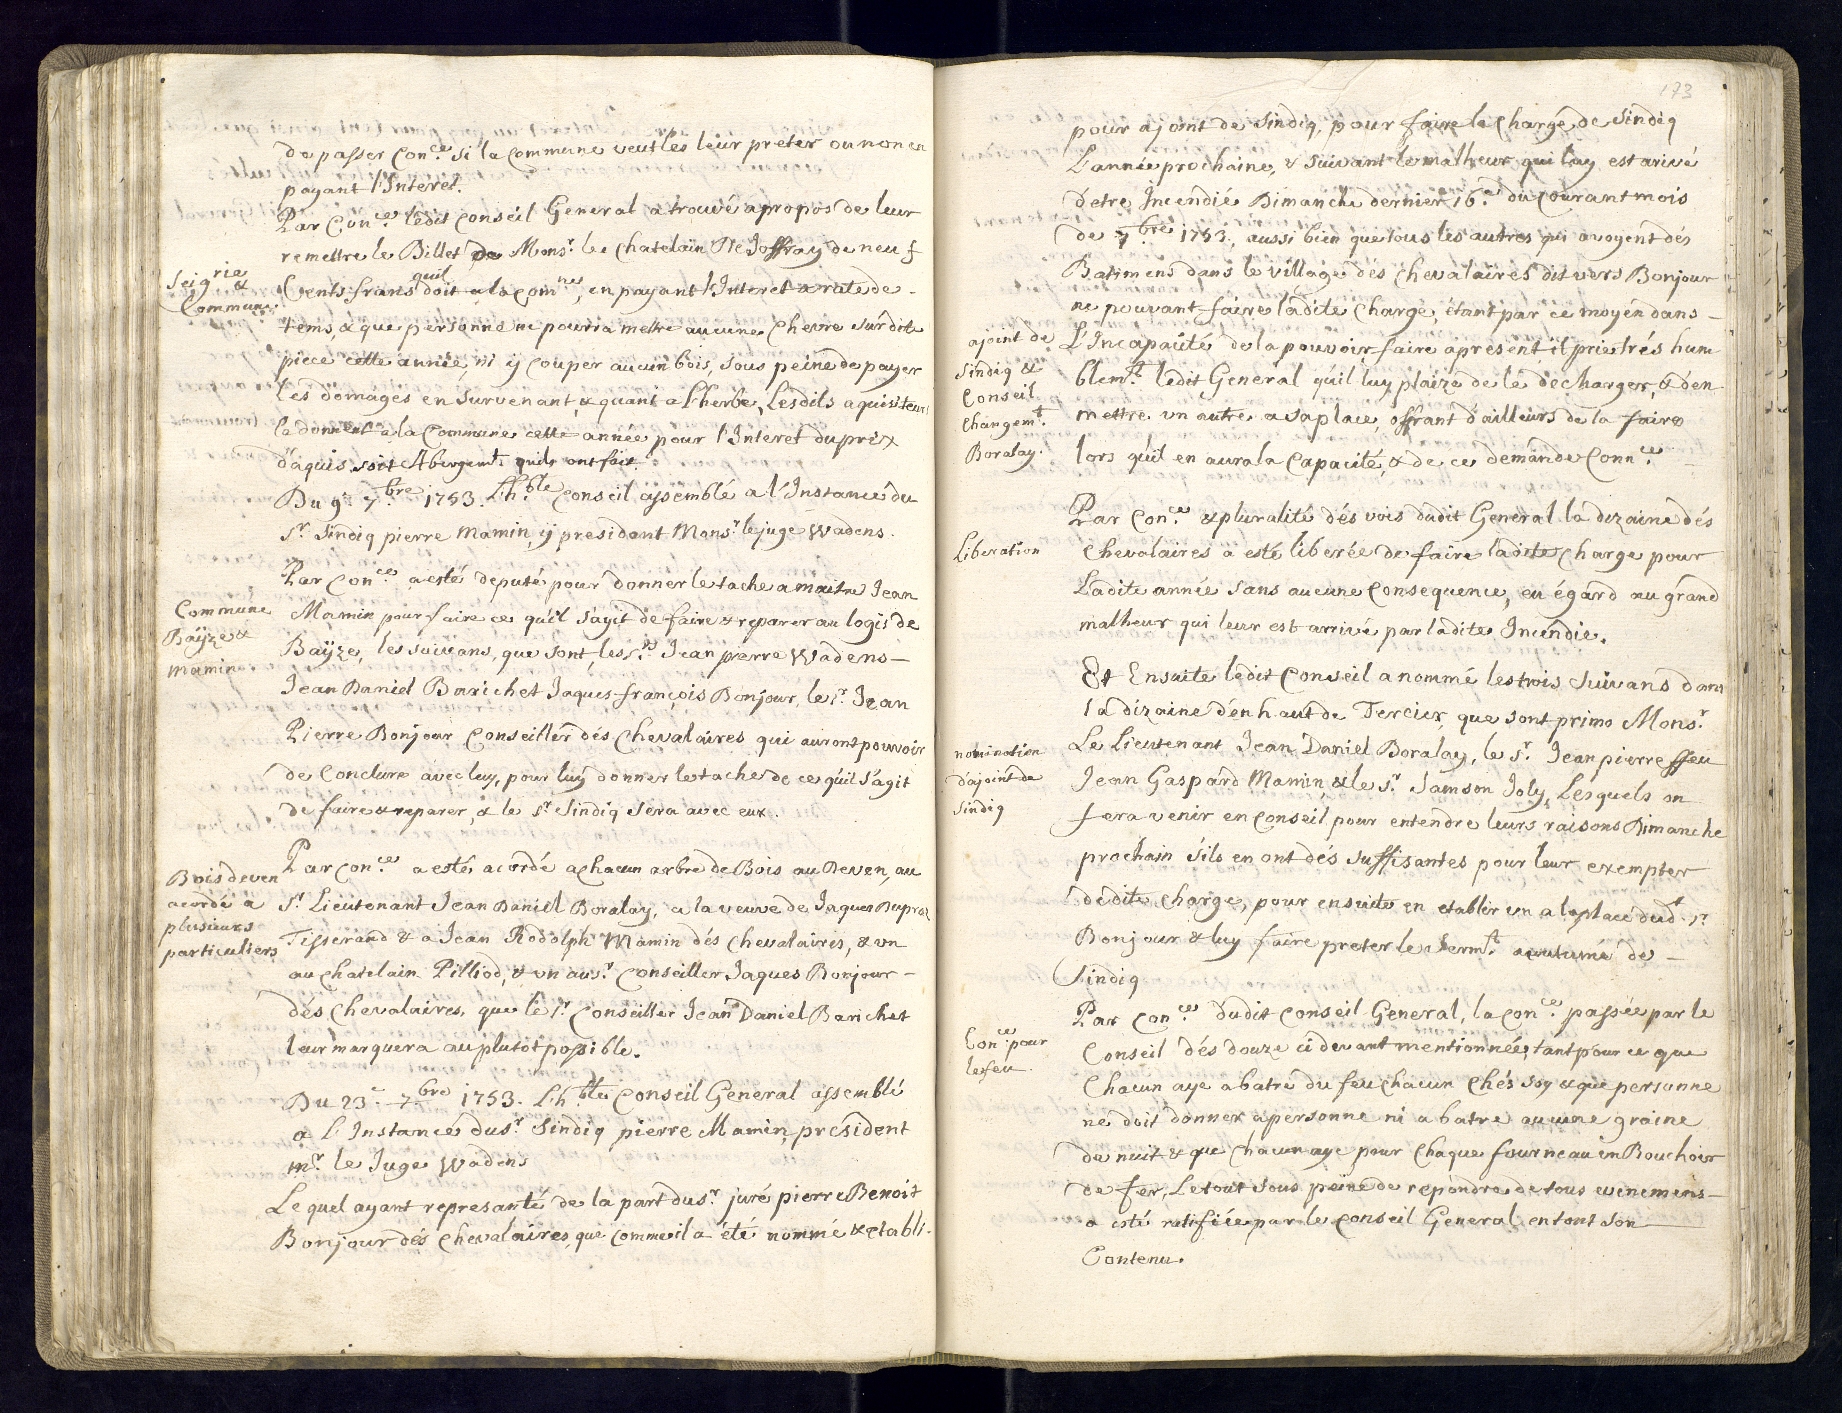 de passer Con.ce si la Commune veut les leur preter ou non en
payant l'Interet.
Par Con.ce ledit Conseil General a trouvé apropos de leur
remettre le Billet de Mons.r le Chatelain De Joffray de neuf
Seig.rie &
Commune
Cents frans quil doit a la Com.ne, en payant l'Interet a rate de
tems, & que personne ne pourra mettre aucune Chevre sur dite
piece cette année, ni y Couper aucun bois, sous peine de payer
les domages en survenant, & quant a l'herbe, Lesdits aquisiteurs
la donnent a la Commune cette année pour l'Interet du prix
d'aquis soit Abergem.t quils ont fait.
Du 9.e 7.bre 1753. Lh.ble Conseil assemblé a l'Instance du
S.r Sindiq pierre Mamin, ij president Mons.r le juge Wadens.
Commune
Baÿze &
Mamin.
Par Con.ce a esté deputé pour donner le tache a maitre Jean
Mamin pour faire ce qu'il s'agit de faire & reparer au logis de
Baÿze, les suivans, que sont, les s.rs Jean pierre Wadens
Jean Daniel Barichet Jaques françois Bonjour, le s.r Jean
Pierre Bonjour Conseiller dés Chevalaires qui auront pouvoir
de Conclure avec luy, pour luy donner le tache de ce qu'il s'agit
de faire & reparer, & le s.r Sindiq sera avec eux.
Bois deven
acordé a
plusieurs
particuliers
Par Con.ce a esté acordé a chacun arbre de Bois au Deven, au
S.r Lieutenant Jean Daniel Boralay, a la veuve de Jaques Dupraz
Tisserand & a Jean Rodolph Mamin dés Chevalaires, & un
au Chatelain Pilliod, & un au s.r Conseiller Jaques Bonjour
dés Chevalaires, que le s.r Conseiller Jean Daniel Barichet
leur marquera au plutôt possible.
Du 23.e 7.bre 1753. Lh.ble Conseil General assemblé
a L'Instance du s.r Sindiq pierre Mamin, president
M.r le Juge Wadens
Lequel ayant represanté de la part du s.r juré pierre Benoit
Bonjour dés Chevalaires, que comme il a été nommé & etabli
173
pour ajoint de Sindiq, pour faire la Charge de Sindiq
L'année prochaine, & suivant le malheur qui luy est arivé
d'etre Incendié Dimanche dernier 16.e du Courant mois
de 7.bre 1753, aussi bien que tous les autres qui avoyent dés
Batimens dans le village dés Chevalaires dit vers Bonjour
ne pouvant faire ladite Charge, étant par ce moyen dans
ajoint de
Sindiq &
Conseil
Changem.t
Boralay.
L'Incapacité de la pouvoir faire apresent il prie trés hum
blem.t ledit General quil luy plaize de le décharger, & d'en
mettre un autre a sa place, offrant d'ailleurs de la faire
lors qu'il en aura la Capacité, & de ce demande Conn.ce
Liberation
Par Con.ce & pluralité dés vois dudit General la dizaine dés
Chevalaires a esté liberée de faire ladite Charge pour
Ladite année sans aucune Consequence, eu égard au grand
malheur qui leur est arrivé par ladite Incendie.
Et Ensuite ledit Conseil a nommé les trois suivans dans
la dizaine d'enhaut de Tercier, que sont primo Mons.r
nomination
d'ajoint de
Sindiq
Le Lieutenant Jean Daniel Boralay, le s.r Jean pierre ffeu
Jean Gaspard Mamin, & le s.r Samson Joly, Lesquels on
fera venir en Conseil pour entendre leurs raisons Dimanche
prochain s'ils en ont dés suffisantes pour leur exempter
dedite Charge, pour ensuite en etablir un a la place dud.t s.r
Bonjour & luy faire preter le serm.t acoutumé de
Sindiq
Con.ce pour
le feu.
Par Con.ce dudit Conseil General, la Con.ce passée par le
Conseil dés douze ci devant mentionnée, tant pour ce que
Chacun aye a batre du feu chacun Chés soy & que personne
ne doit donner a personne ni a batre aucune graine
de nuit & que Chacun aye pour Chaque fourneau un Bouchoir
de fer, Le tout sous peine de repondre de tous evenemens
a esté ratifiée par le Conseil General en tout son
Contenu.